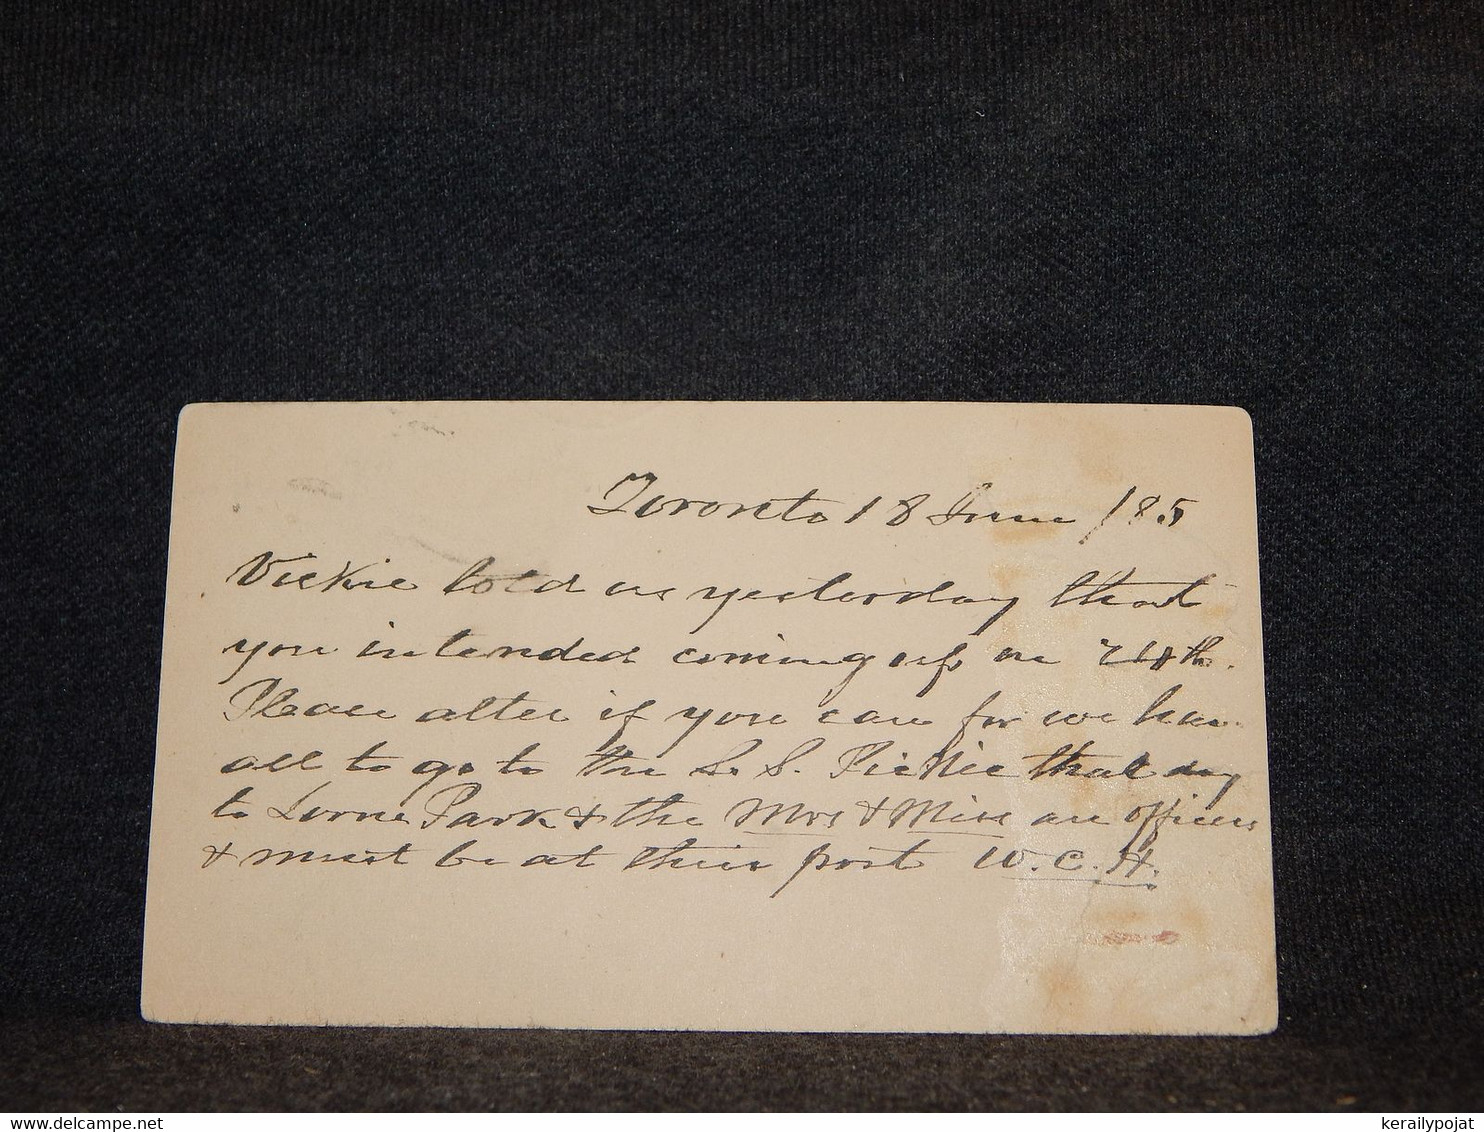 Toronto 18 June /85
Vickie told us yesterday that
you intended coming up on 24th.
Please alter if you can for we have
all to go to the S. S. Picnic that day
to Lorne Park & the Mrs & Miss are officers
& must be at their post W. C. H.
kerailypojat